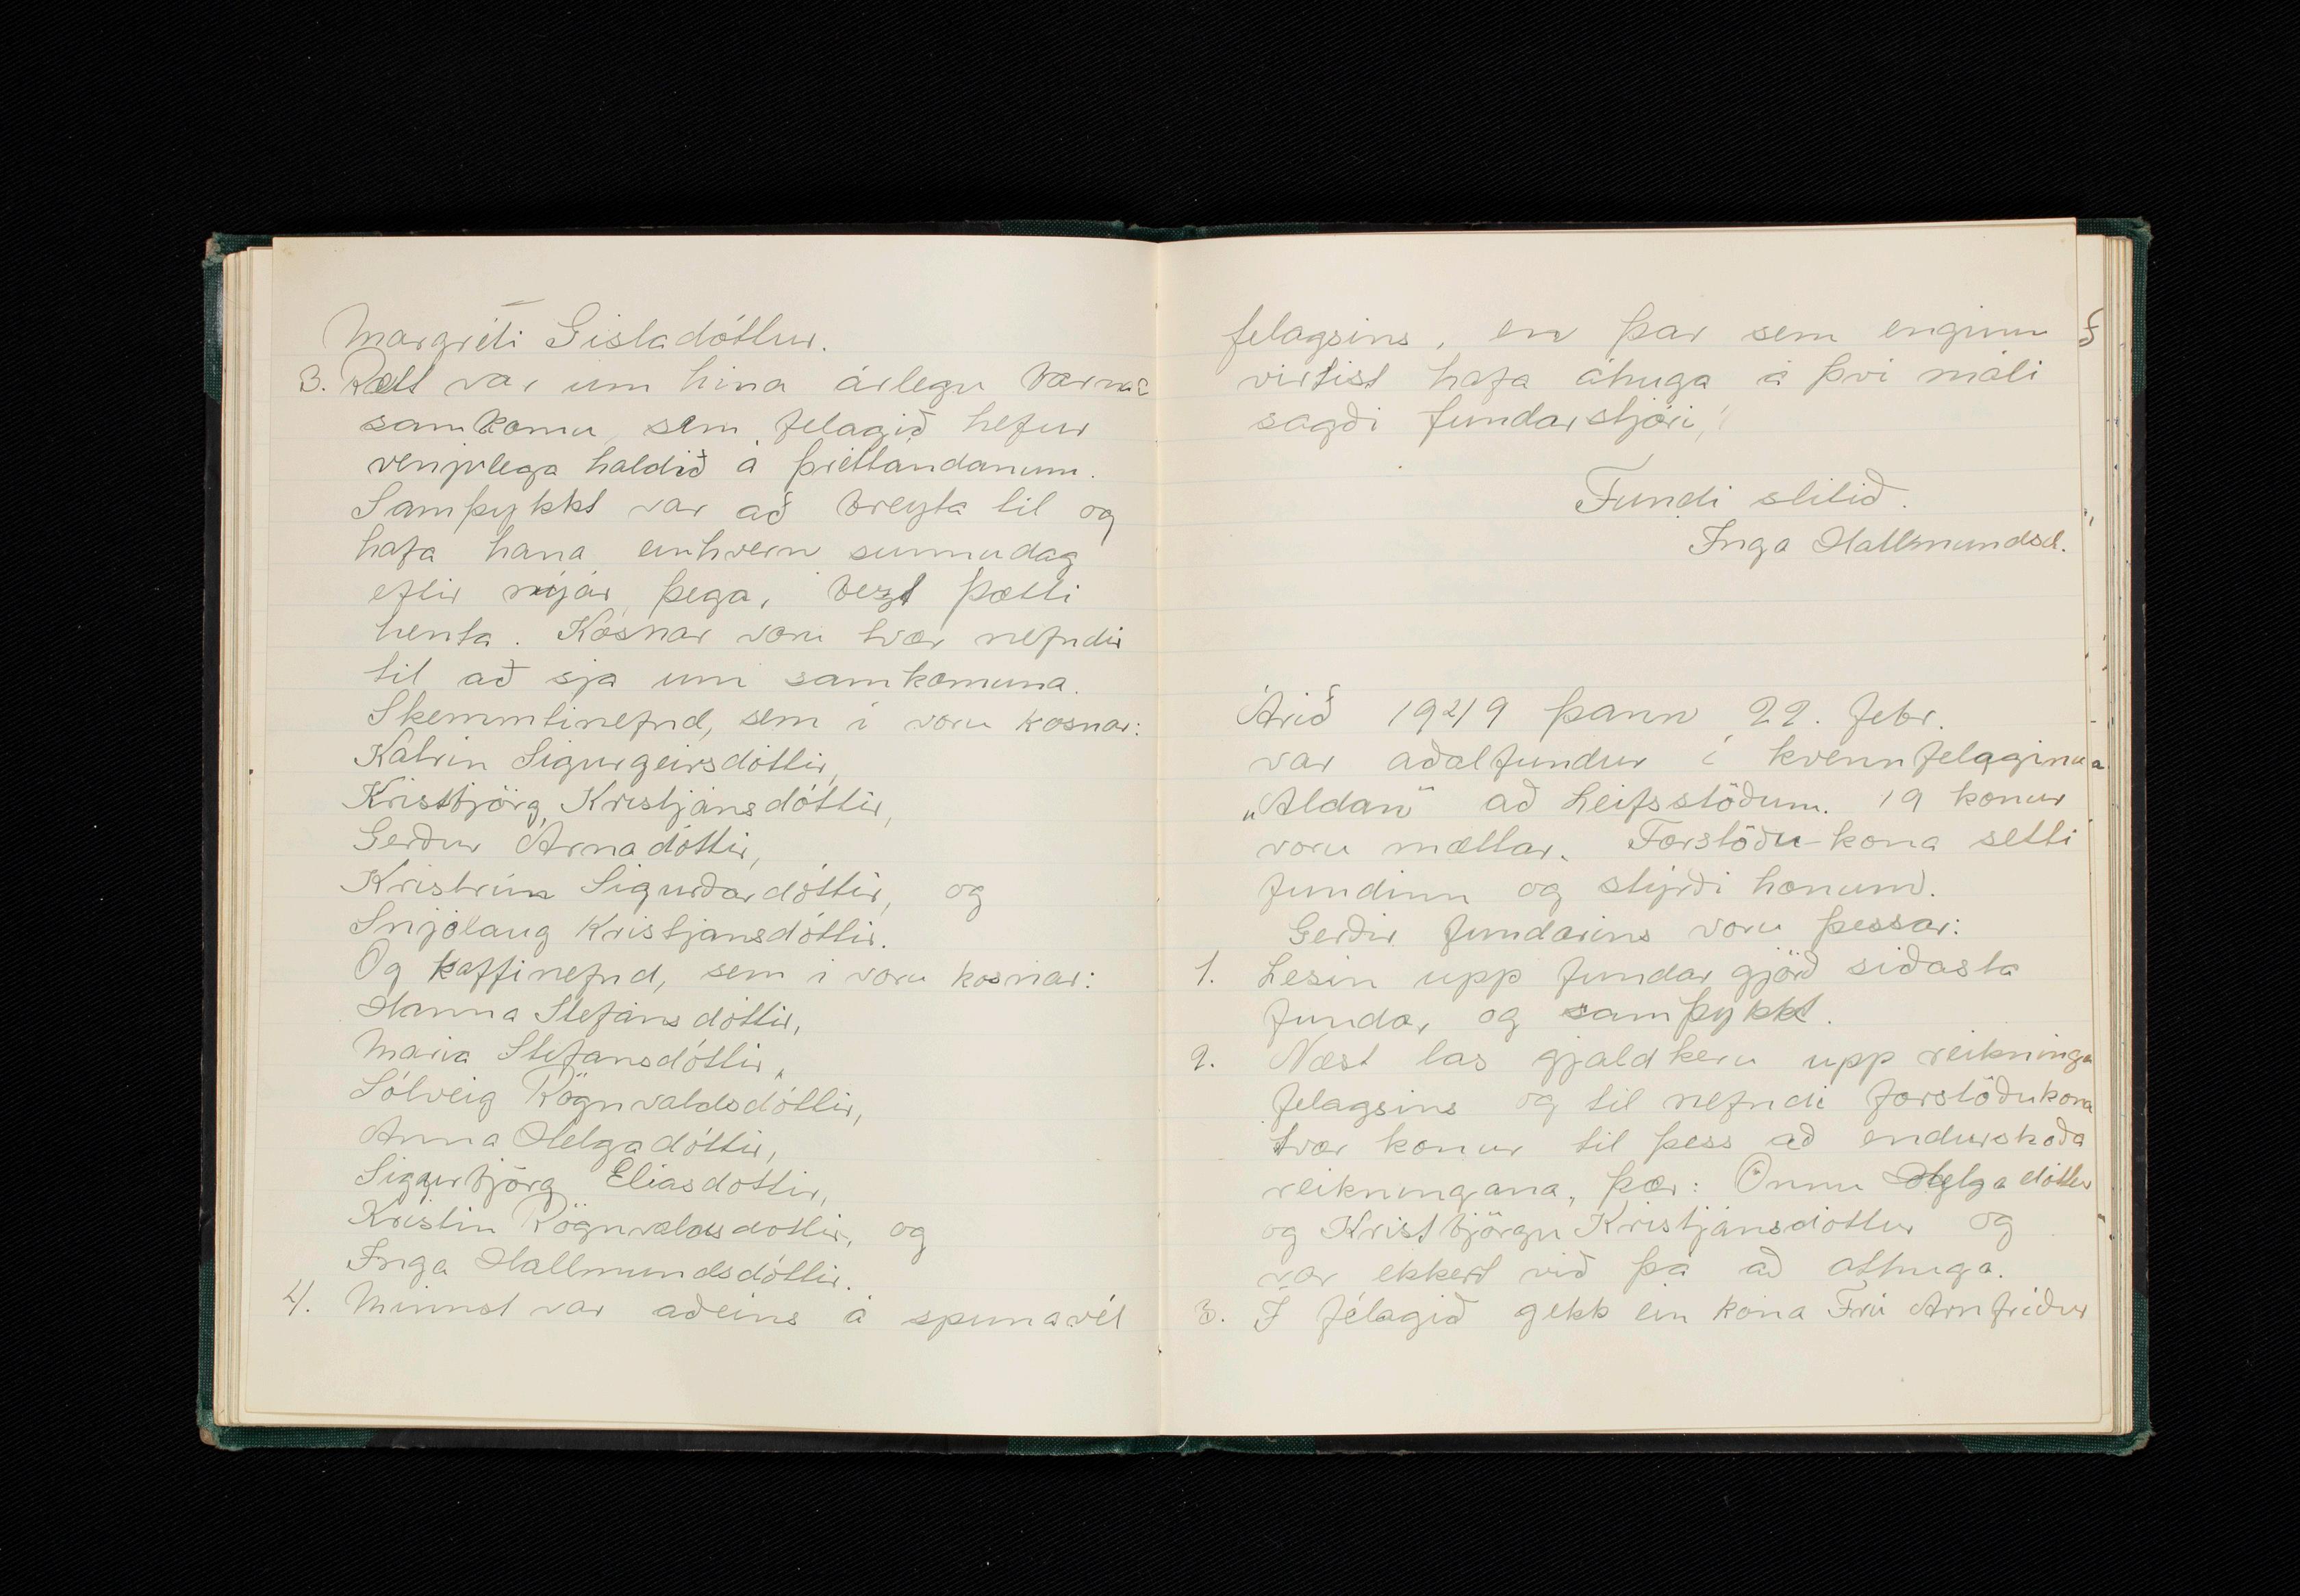 Margréti Gisladóttur.
3. Rætt var um hina árlegu barna-
samkomu, sem felagið hefur
venjulega haldið á þrettandanum.
Samþykkt var að breyta til og
hafa hana einhvern sunnudag
eftir nýjár, þegar bezt þætti
henta. Kosnar voru tvær nefndir
til að sja um samkomuna.
Skemmtinefnd, sem í voru kosnar:
Katrin Sigurgeirsdóttir,
Kristbjörg Kristjánsdóttir,
Gerður Árnadóttir,
Kristrún Sigurðardóttir, og
Snjólaug Kristjánsdóttir.
Og kaffinefnd, sem i voru kosnar:
Hanna Stefánsdóttir,
Maria Stefansdóttir,
Sólveig Rögnvaldsdóttir,
Anna Helgadóttir,
Sigurbjörg Eliasdottir,
Kristin Rögnvaldsdottir, og
Inga Hallmundsdóttir.
4. Minnst var aðeins á spunavél
felagsins, en þar sem enginn
virtist hafa áhuga á þvi máli
sagði fundarstjóri,
Fundi slitið.
Inga Hallmundsd.
Árið 1949 þann 22. febr.
var aðalfundur í kvennfelaginu
„Aldan" að Leifsstöðum. 19 konur
voru mættar. Forstöðu-kona setti
fundinn og stýrði honum.
Gerðir fundarins voru þessar:
1. Lesin upp fundargjörð siðasta
fundar, og samþykkt.
2. Næst las gjaldkeru upp reikninga
felagsins og til nefndi forstöðukona
tvær konur til þess að endurskoða
reikningana, þær: Önnu Helgadóttur
og Kristbjörgu Kristjánsdóttur og
var ekkert við þá að athuga.
3. Í félagið gekk ein kona Frú Arnfriður